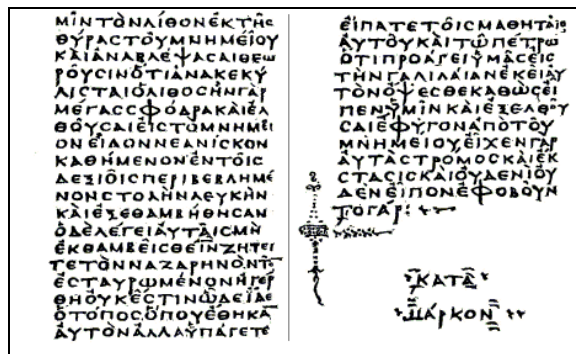 ΜΙΝΤΟΝΛΙΘΟΝΕΚΤΗC
ΘΥΡΑCΤΟΥΜΝΗΜΕΙΟΥ
ΚΑΙΑΝΑΒΛΕΨΑCΑΙΘΕΩ
ΡΟΥCΙΝΟΤΙΑΝΑΚΕΚΥ
ΛΙCΤΑΙΟΛΙΘΟCΗΝΓΑΡ
ΜΕΓΑCCΦΟΔΡΑΚΑΙΕΛ
ΘΟΥCΑΙΕΙCΤΟΜΝΗΜΕΙ
ΟΝΕΙΔΟΝΝΕΑΝΙCΚΟΝ
ΚΑΘΗΜΕΝΟΝΕΝΤΟΙC
ΔΕΞΙΟΙCΠΕΡΙΒΕΒΛΗΜΕ
ΝΟΝCΤΟΛΗΝΛΕΥΚΗΝ
ΚΑΙΕΞΕΘΑΜΒΗΘΗCΑΝ
ΟΔΕΛΕΓΕΙΑΥΤΑΙCΜΗ
ΕΚΘΑΜΒΕΙCΘΕΙΝΖΗΤΕΙ
ΤΕΤΟΝΝΑΖΑΡΗΝΟΝΤΟ̅
ΕCΤΑΥΡΩΜΕΝΟΝΗΓΕΡ
ΘΗΟΥΚΕCΤΙΝΩΔΕΙΔΕ
ΟΤΟΠΟCΟΠΟΥΕΘΗΚΑ̅
ΑΥΤΟΝΑΛΛΑΥΠΑΓΕΤΕ
ΕΙΠΑΤΕΤΟΙCΜΑΘΗΤΑΙC
ΑΥΤΟΥΚΑΙΤΩΠΕΤΡΩ
ΟΤΙΠΡΟΑΓΕΙΥΜΑCΕΙC
ΤΗΝΓΑΛΙΛΑΙΑΝΕΚΕΙΑΥ
ΤΟΝΟΨΕCΘΕΚΑΘΩCΕΙ
ΠΕΝΥΜΙΝΚΑΙΕΞΕΛΘΟΥ
CΑΙΕΦΥΓΟΝΑΠΟΤΟΥ
ΜΝΗΜΕΙΟΥΕΙΧΕΝΓΑΡ
ΑΥΤΑCΤΡΟΜΟCΚΑΙΕΚ
CΤΑCΙCΚΑΙΟΥΔΕΝΙΟΥ
ΔΕΝΕΙΠΟΝΕΦΟΒΟΥΝ
ΤΟΓΑΡ:
ΚΑΤΑ
ΜΑΡΚΟΝ